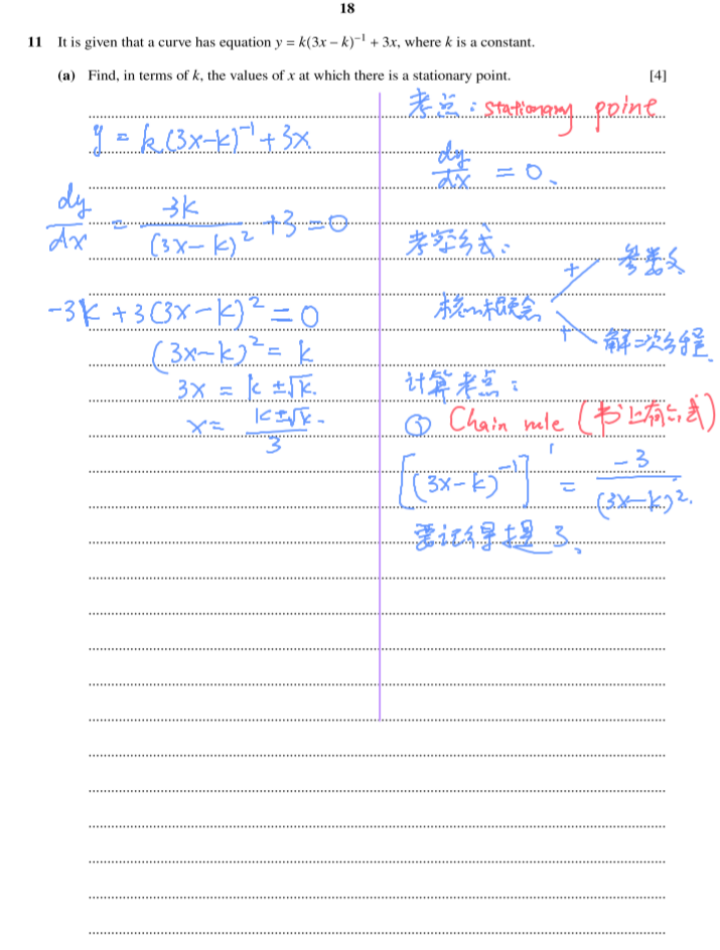 18
11 It is given that a curve has equation y = k(3x – k)⁻¹ + 3x, where k is a constant.
(a) Find, in terms of k, the values of x at which there is a stationary point. [4]
y = k(3x-k)⁻¹ + 3x
dy/dx = 3k/(3x-k)² + 3 = 0
-3k + 3(3x-k)² = 0
(3x-k)² = k
3x = k ±√k.
x = (k±√k)/3
考点：stationary point
dy/dx = 0、
考察方式：
核心概念
+ 含参
+ 解二次方程
计算考点：
① Chain rule (书上有公式)
[(3x-k)⁻¹]' = -3/(3x-k)².
要记得提 3、